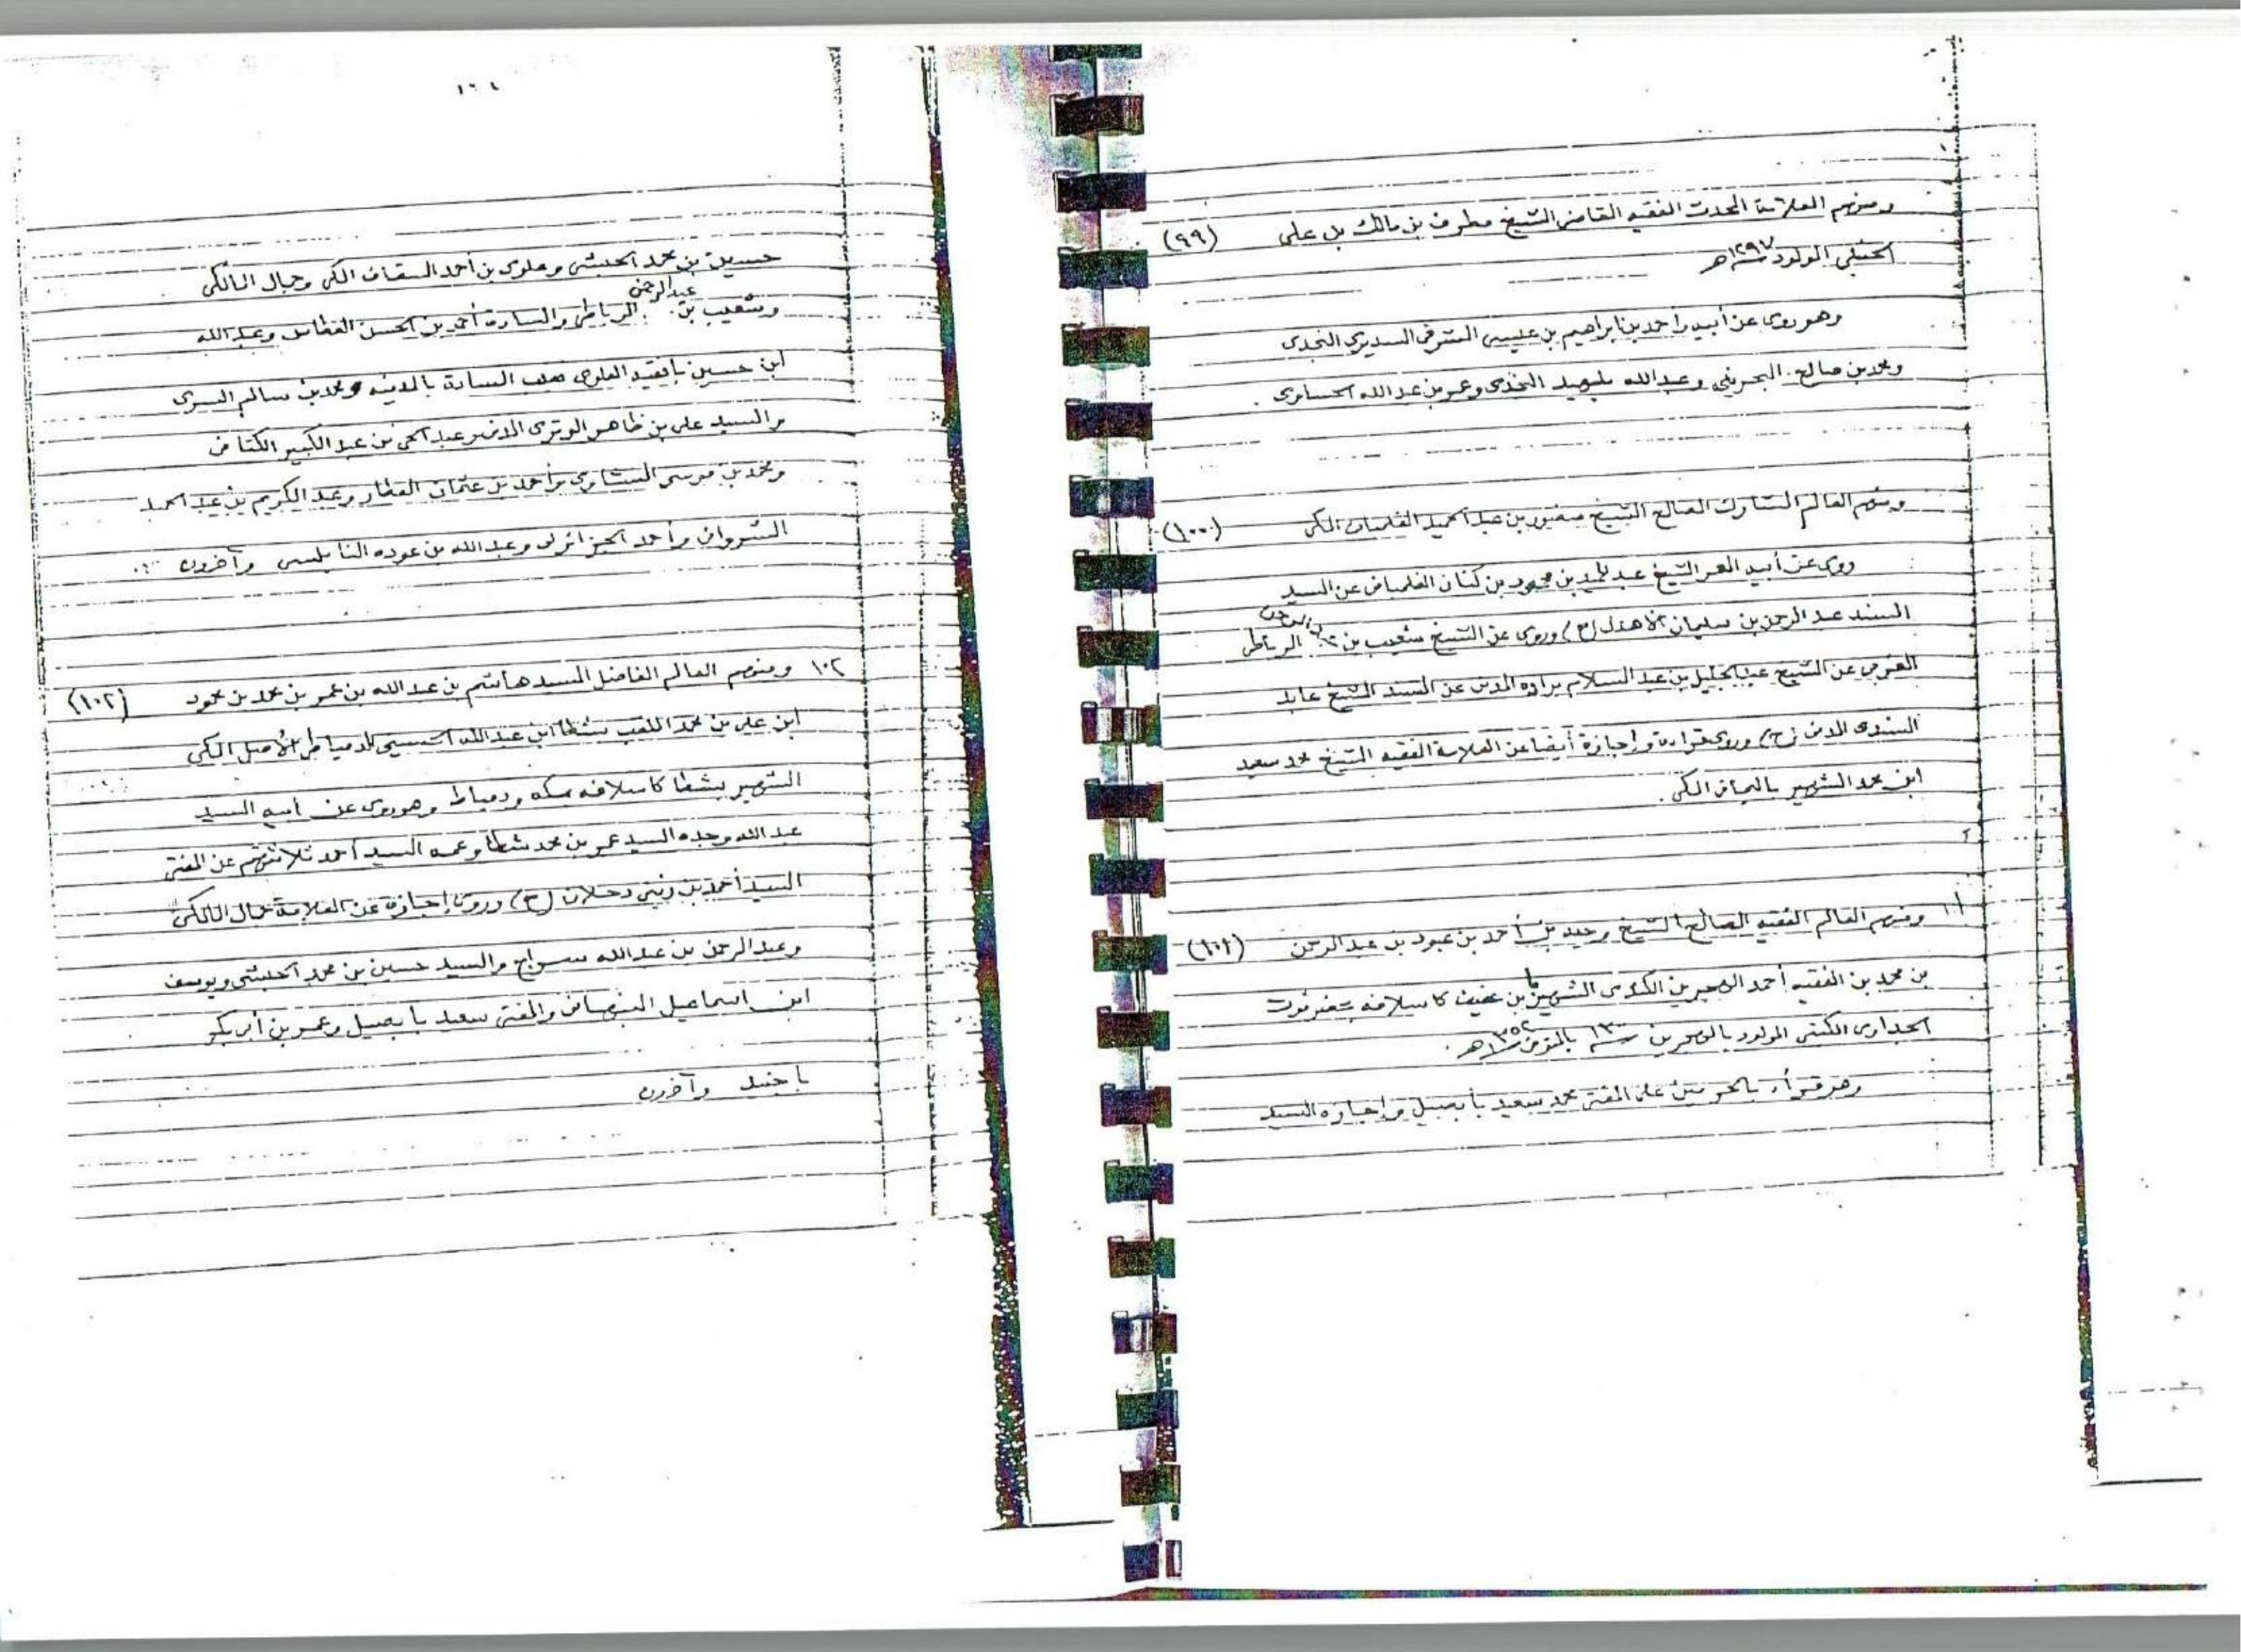 ومنهم العلامة المحدث الفقيه القاضى الشيخ مطرف بن مالك بن على (٩٩)
الحنبلى المولود ١٢٩٧هـ
وهو روى عن أبيه وأحمد بن ابراهيم بن عيسى الشرقى السديرى النجدى
ومحمد بن صالح البحرينى وعبدالله بليهيد النجدى وعمر بن عبدالله الحساوى .
ومنهم العالم المشارك الصالح الشيخ بن عبدالحميد الفلمبانى المكى (١٠٠)
روى عن أبيه المعمر الشيخ عبدالحميد بن محمود بن كنان الفلمبانى عن السيد
المسند عبد الرحمن بن سليمان الأهدل (ح) وروى عن الشيخ شعيب بن عبدالرحمن الرباطى
المغربى عن الشيخ عبدالجليل بن عبد السلام براده المدنى عن المسند الشيخ عابد
السندى المدنى (ح) وروى قراءة وإجازة أيضا عن العلامة الفقيه الشيخ محمد سعيد
ابن محمد الشهير باليمانى المكى .
١٠١ ومنهم العالم الفقيه الصالح الشيخ بن أحمد بن عبود بن عبد الرحمن (١٠١)
بن محمد بن الفقيه أحمد الهجرين الكندى الشهير بابن عفيف كأسلافه بحضرموت
المولود بالهجرين ١٣٠٠ المتوفى ١٣٥٢هـ .
وهو قرأ بالحرمين على المفتى محمد سعيد بابصيل وإجازة السيد
١٠٤
حسين بن محمد الحبشى وعلوى بن أحمد السقاف المكى وجمال المالكى
وشعيب بن عبدالرحمن الرباطى والسادة أحمد بن الحسن العطاس وعبدالله
ابن حسين بافقيه العلوى السادة بالمدينه ومحمد بن سالم السرى
والسيد على بن ظاهر الوترى المدنى وعبدالحى بن عبد الكبير الكتانى
ومحمد بن موسى وأحمد بن عثمان العطار وعبد الكريم بن عبد الحميد
الشروانى وأحمد الجزائرلى وعبدالله بن عوده النابلسى وآخرون
١٠٢ ومنهم العالم الفاضل السيد هاشم بن عبدالله بن عمر بن محمد بن محمود (١٠٢)
ابن على بن محمد الملقب بشطا ابن عبدالله الحسينى الدمياطى الأصل المكى
الشهير بشطا كأسلافه بمكه ودمياط وهو روى عن أبيه السيد
عبد الله وجده السيد عمر بن محمد شطا وعمه السيد أحمد ثلاثتهم عن المفتى
السيد أحمد بن زينى دحلان (ح) وروى إجازة عن العلامة جمال المالكى
وعبدالرحمن بن عبدالله سراج والسيد حسين بن محمد الحبشى ويوسف
ابن اسماعيل النبهانى والمفتى سعيد بابصيل وعمر بن أبى بكر
باجنيد وآخرون